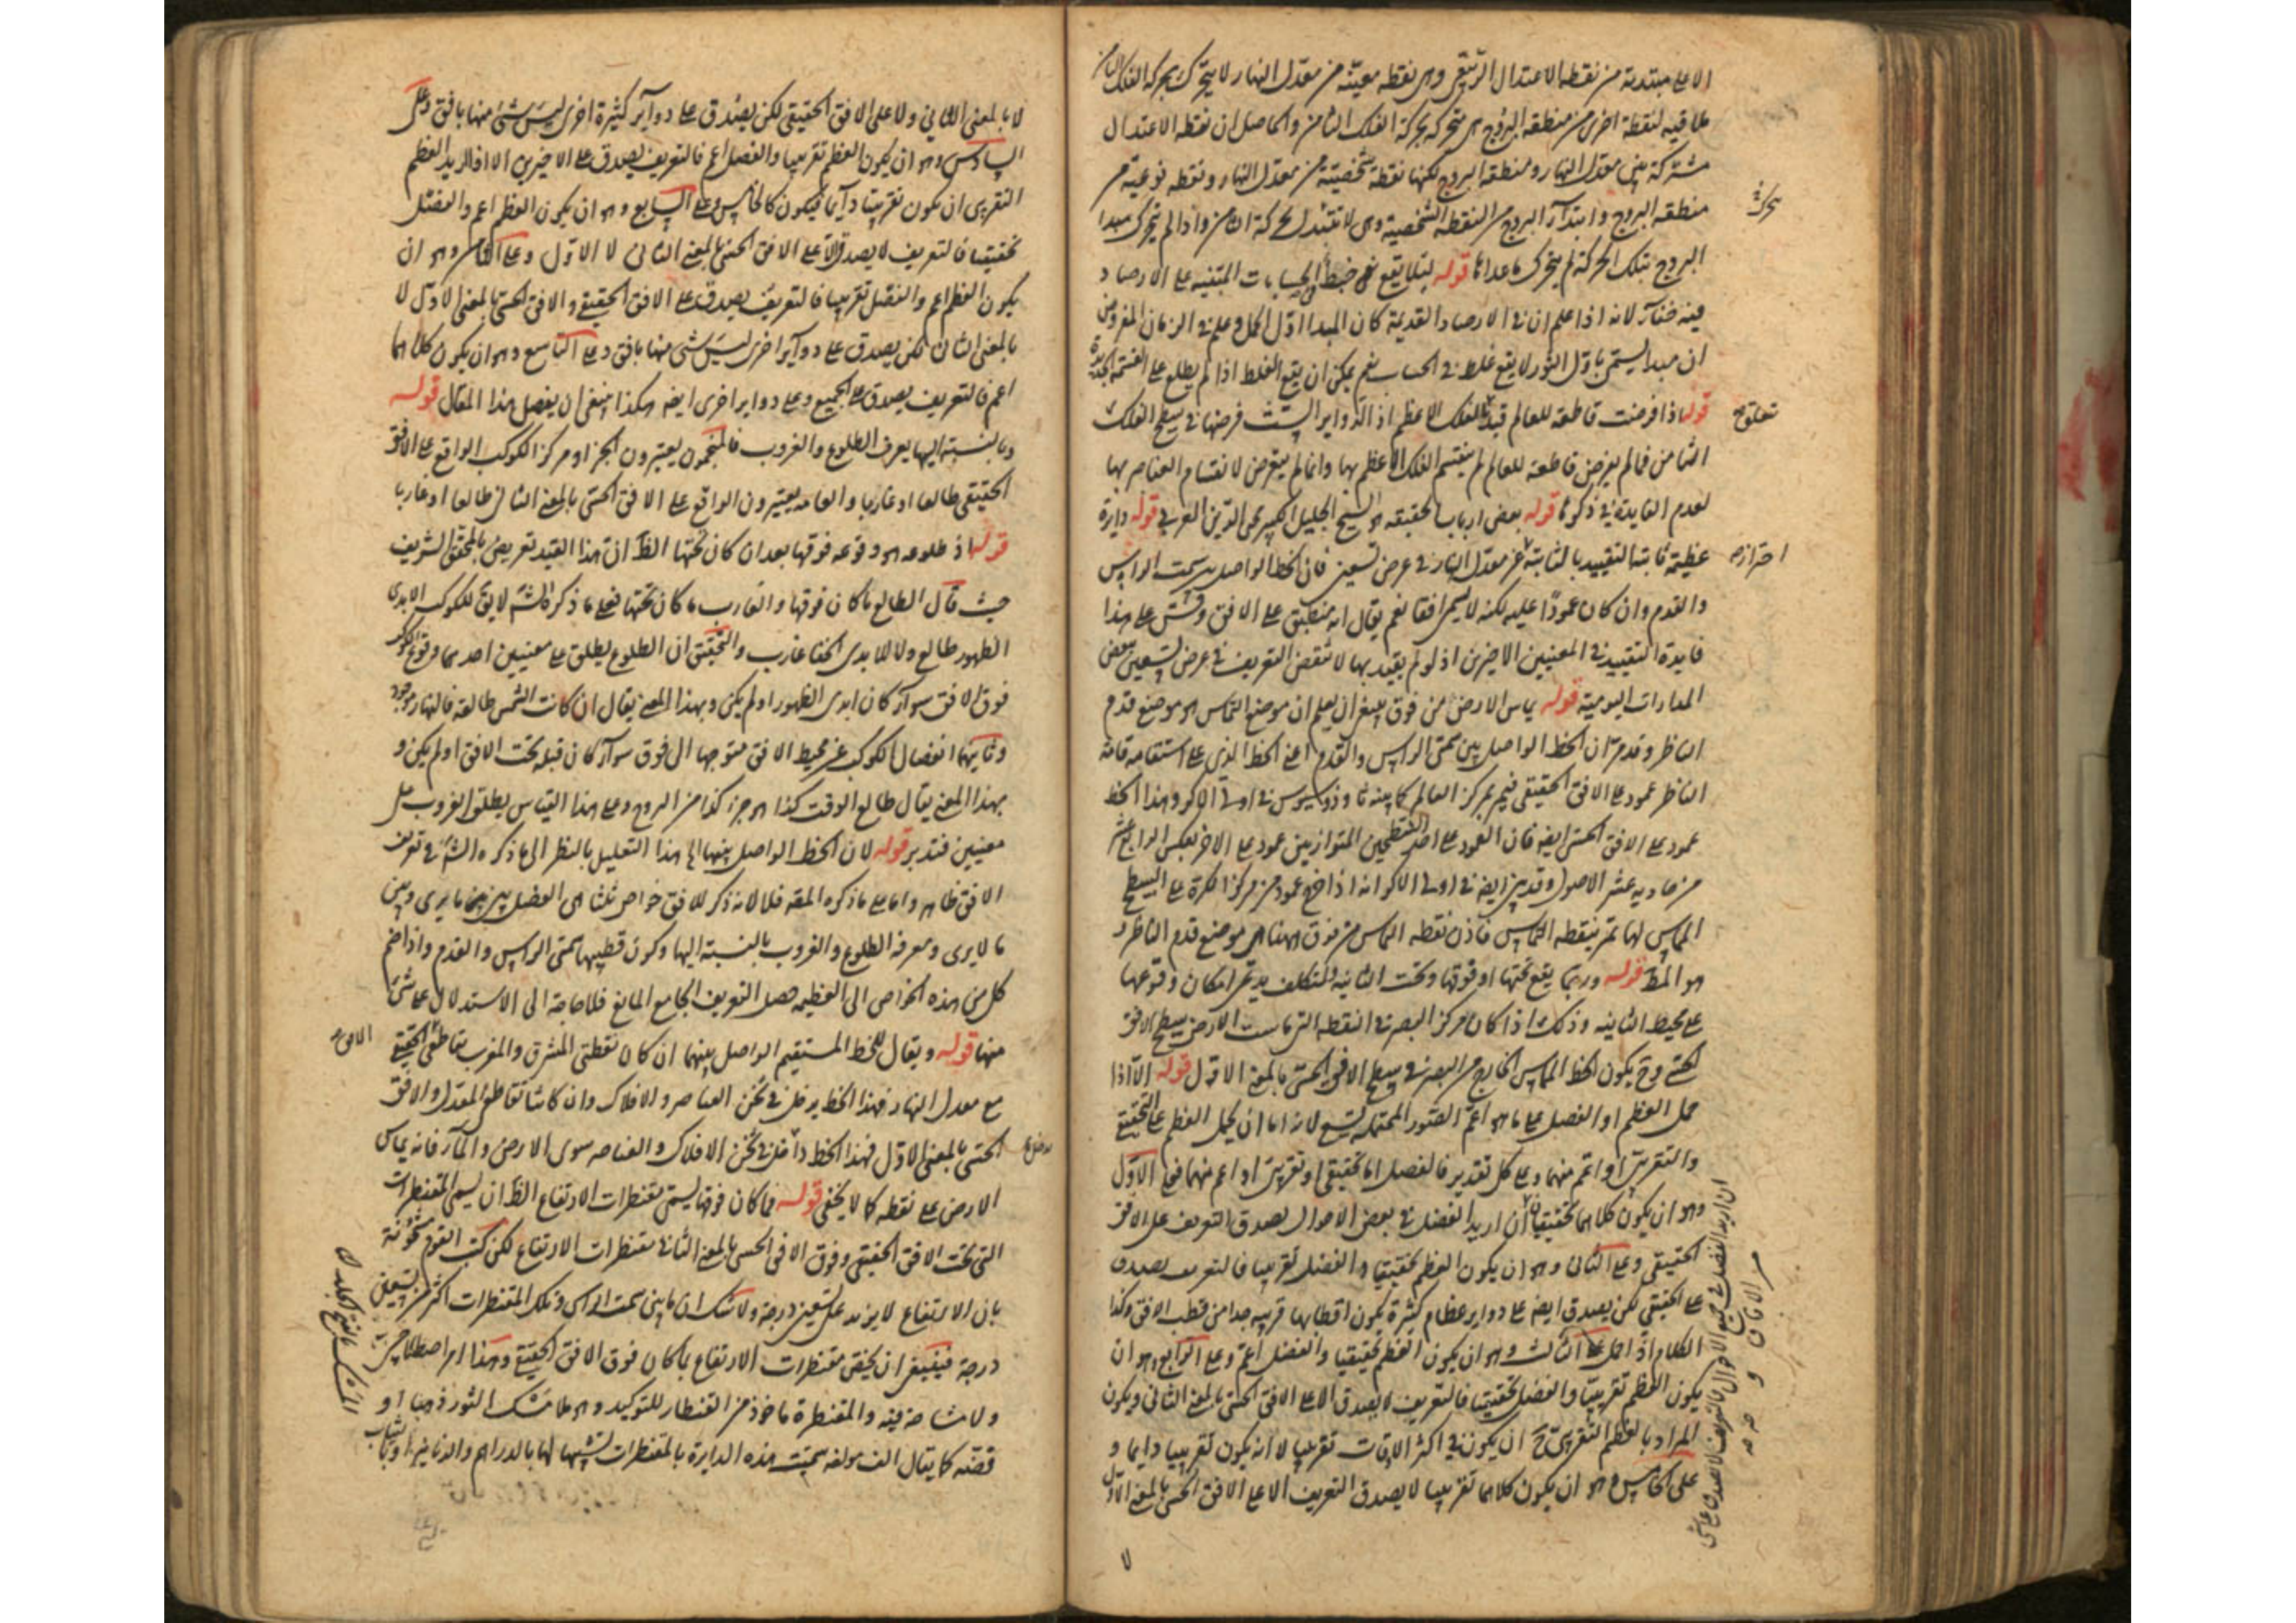 الا على مبتدئة من نقطة الاعتدال الربيعي وهى نقطة معينة من معدل النهار لا يتحرك بحركة الفلك الثامن
ملاقية لنقطة اخرى من منطقة البروج هى متحركة بحركة الفلك الثامن والحاصل ان نقطة الاعتدال
مشتركة بين معدل النهار ومنطقة البروج لكنها نقطة شخصية من معدل النهار ونقطة نوعية من
منطقة البروج وابتداء البروج من النقطة الشخصية وهى لا تتبدل بحركة الثامن واذا لم يتحرك مبدا
البروج بتلك الحركة لم يتحرك ما عداها قوله لئلا يقع فى ضبط الحسابات المبتنية على الارصاد
فيه خفاء لانه اذا علم ان فى الارصاد القديمة كان المبدا اول الحمل وعلم فى الزمان المفروض
ان مبدا يسمى باول الثور لا يقع غلط فى الحساب نعم يمكن ان يقع الغلط اذا لم يطلع على القسمة الجديدة
قوله اذا فرضت قاطعة للعالم قيد للفلك الاعظم اذ الدواير الست فرضها فى سطح الفلك
الثامن فما لم يفرض قاطعة للعالم لم ينقسم الفلك الاعظم بها وانما لم يتعرض لانقسام العناصر بها
لعدم الفايدة فى ذكرها قوله بعض ارباب الحقيقة هو الشيخ الجليل الكبير محى الدين العربي قوله دايرة
عظيمة ثابتة التقييد بالثابتة عن معدل النهار فى عرض تسعين فان الخط الواصل بين سمت الراس
والقدم وان كان عمودا عليه لكنه لا يسمى افقا نعم يقال انه منطبق على الافق وقس على هذا
فايدة التقييد فى المعنيين الاخيرين اذ لو لم يقيد بها لانتقض التعريف فى عرض تسعين ببعض
المدارات اليومية قوله يماس الارض من فوق ينبغى ان يعلم ان موضع التماس هو موضع قدم
الناظر وقد مر ان الخط الواصل بين سمتى الراس والقدم اعنى الخط الذى على استقامة قامة
الناظر عمود على الافق الحقيقى فيمر بمركز العالم كما بينه ثاوذوسيوس فى اولى الاكر وهذا الخط
عمود على الافق الحسى ايضا فان العمود على احد السطحين المتوازيين عمود على الاخر بعكس الرابع عشر
من حادية عشر الاصول وقد بين ايضا فى اولى الاكر انه اذا اخرج عمود من مركز الكرة على السطح
المماس لها تمر بنقطة التماس فاذن نقطة التماس من فوق ههنا هى موضع قدم الناظر و
هو المط قوله وربما يقع تحتها او فوقها وتحت الثانية والمتكلف يدعى امكان وقوعها
على محيط الثانية وذلك اذا كان مركز البصر فى النقطة التى ماست الارض بسطح الافق
الحسى وح يكون الخط المماس الخارج من البصر فى سطح الافق الحسى بالمعنى الاول قوله الا اذا
حمل العظم او الفصل على ما هو اعم الصور المحتملة تسع لانه اما ان يحمل العظم على التحقيقى
والتقريبى او اعم منهما وعلى كل تقدير فالفصل اما تحقيقى او تقريبى او اعم منهما فعلى الاول
وهو ان يكون كلاهما تحقيقيان ان اريد الفصل فى بعض الاحوال يصدق التعريف على الافق
الحقيقى وعلى الثانى وهو ان يكون العظم تحقيقيا والفصل تقريبيا فالتعريف يصدق
على الحقيقى لكن يصدق ايضا على دواير عظام كثيرة يكون اقطابها قريبة جدا من قطب الافق وكذا
الكلام اذا حمل على الثالث وهو ان يكون العظم تحقيقيا والفصل اعم وعلى الرابع وهو ان
يكون العظم تقريبيا والفصل تحقيقيا فالتعريف لا يصدق الا على الافق الحسى بالمعنى الثانى ويكون
المراد بالعظم التقريبى ح ان يكون فى اكثر الاوقات تقريبيا لا انه يكون تقريبيا دايما و
على الخامس وهو ان يكون كلاهما تقريبيا لا يصدق التعريف الا على الافق الحسى بالمعنى الاول
احترازه
ان اريد الفصل فى جميع الاحوال فالتعريف لا يصدق على شئ
من الافاق
لا بالمعنى الثاني ولا على الافق الحقيقى لكن يصدق على دواير كثيرة اخرى ليس شئ منها بافق وعلى
السادس وهو ان يكون العظم تقريبيا والفصل اعم فالتعريف يصدق على الاخيرين الا اذا اريد بالعظم
التقريبى ان يكون تقريبيا دايما فيكون كالخامس وعلى السابع وهو ان يكون العظم اعم والفصل
تحقيقيا فالتعريف لا يصدق الا على الافق الحسى بالمعنى الثانى لا الاول وعلى الثامن وهو ان
يكون العظم اعم والفصل تقريبيا فالتعريف يصدق على الافق الحقيقى والافق الحسى بالمعنى الاول لا
بالمعنى الثانى لكن يصدق على دواير اخرى ليس شئ منها بافق وعلى التاسع وهو ان يكون كلاهما
اعم فالتعريف يصدق على الجميع وعلى دواير اخرى ايضا هكذا ينبغى ان يفصل هذا المقال قوله
وبالنسبة اليها يعرف الطلوع والغروب فالمنجمون يعتبرون الجزء او مركز الكوكب الواقع على الافق
الحقيقى طالعا او غاربا والعامة يعتبرون الواقع على الافق الحسى بالمعنى الثانى طالعا او غاربا
قوله اذ طلوعه هو وقوعه فوقها بعد ان كان تحتها الظ ان هذا القيد تعريض بالمحقق الشريف
حيث قال الطالع ما كان فوقها والغارب ما كان تحتها فعلى ما ذكره الش لا يق للكوكب الابدى
الظهور طالع ولا للابدى الخفا غارب والتحقيق ان الطلوع يطلق على معنيين احدهما وقوع الكوكب
فوق الافق سواء كان ابدى الظهور او لم يكن وبهذا المعنى يقال ان كانت الشمس طالعة فالنهار موجود
وثانيهما انفصال الكوكب عن محيط الافق متوجها الى فوق سواء كان قبله تحت الافق او لم يكن و
بهذا المعنى يقال طالع الوقت كذا هو جزء كذا من البروج وعلى هذا القياس يطلق الغروب على
معنيين فتدبر قوله لان الخط الواصل بينهما الخ هذا التعليل بالنظر الى ما ذكره الش فى تعريف
الافق ظاهر واما على ما ذكره المصـ فلا لانه ذكر للافق خواص ثلثا هى الفصل بين ما يرى وبين
ما لا يرى ومعرفة الطلوع والغروب بالنسبة اليها وكون قطبيها سمتى الراس والقدم واذا ضم
كل من هذه الخواص الى العظيمة حصل التعريف الجامع المانع فلا حاجة الى الاستدلال على شئ
منها قوله ويقال للخط المستقيم الواصل بينهما ان كان نقطتى المشرق والمغرب تقاطعى الحقيقى
مع معدل النهار فهذا الخط يدخل فى ثخن العناصر والافلاك وان كانتا تقاطع المعدل والافق
الحسى بالمعنى الاول فهذا الخط داخل فى ثخن الافلاك والعناصر سوى الارض والماء فانه يماس
الارض على نقطة كما لا يخفى قوله فما كان فوقها يسمى مقنطرات الارتفاع الظ ان يسمى المقنطرات
التى تحت الافق الحقيقى وفوق الافق الحسى بالمعنى الثانى مقنطرات الارتفاع لكن كتب القوم مشحونة
بان الارتفاع لا يزيد على تسعين درجة ولا شك ان ما بين سمت الراس وتلك المقنطرات اكثر من تسعين
درجة فينبغى ان يختص مقنطرات الارتفاع بما كان فوق الافق الحقيقى وهذا امر اصطلاحى
ولا مشاحة فيه والمقنطرة ماخوذ من القنطار للتوكيد وهو ملا مسك الثور ذهبا او
فضة كما يقال الف مولفة سميت هذه الدايرة بالمقنطرات تشبيها لها بالدراهم والدنانير او بالثياب
الافق
المسك بالفتح الجلد